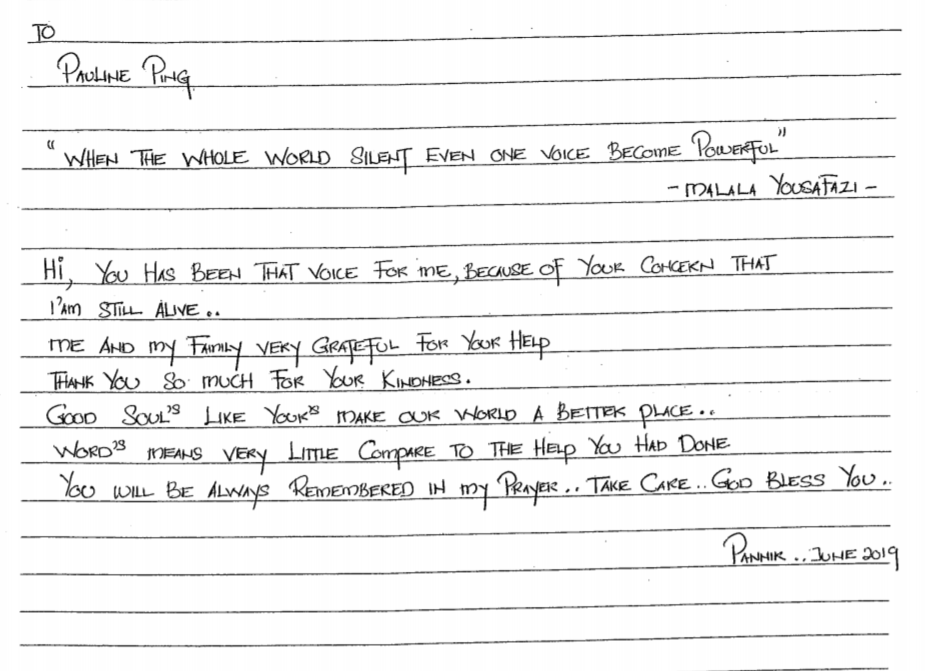 TO
PAULINE PING
"WHEN THE WHOLE WORLD SILENT EVEN ONE VOICE BECOME POWERFUL"
- MALALA YOUSAFAZI -
Hi, YOU HAS BEEN THAT VOICE FOR ME, BECAUSE OF YOUR CONCERN THAT
I'AM STILL ALIVE..
ME AND MY FAMILY VERY GRATEFUL FOR YOUR HELP
THANK YOU SO MUCH FOR YOUR KINDNESS.
GOOD SOUL'S LIKE YOUR'S MAKE OUR WORLD A BETTER PLACE..
WORD'S MEANS VERY LITTLE COMPARE TO THE HELP YOU HAD DONE
YOU WILL BE ALWAYS REMEMBERED IN MY PRAYER.. TAKE CARE.. GOD BLESS YOU..
PANNIR.. JUNE 2019